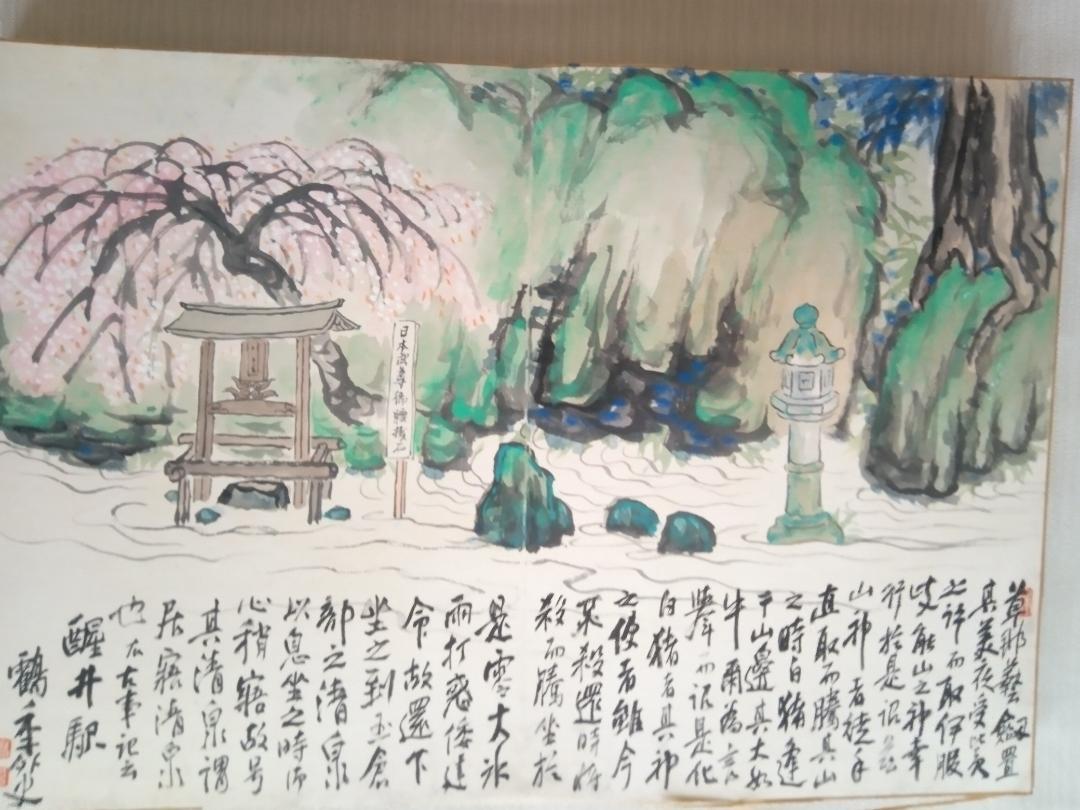 日本武尊御腰掛石
草那藝劔置
其美夜受比賣
之許而取伊服
岐能山之神幸
行於是詔茲
山神者徒手
直取而騰其山
之時白猪逢
于山邊其大如
牛爾為言
擧而詔是化
白猪者其神
之使者雖今
不殺還時将
殺而騰坐於
是零大氷
雨打惑倭建
命故還下
坐之到玉倉
部之清泉
以息坐之時御
心稍寤故号
其清泉謂
居寤清泉
也 右古事記云
醒井駅
鶴